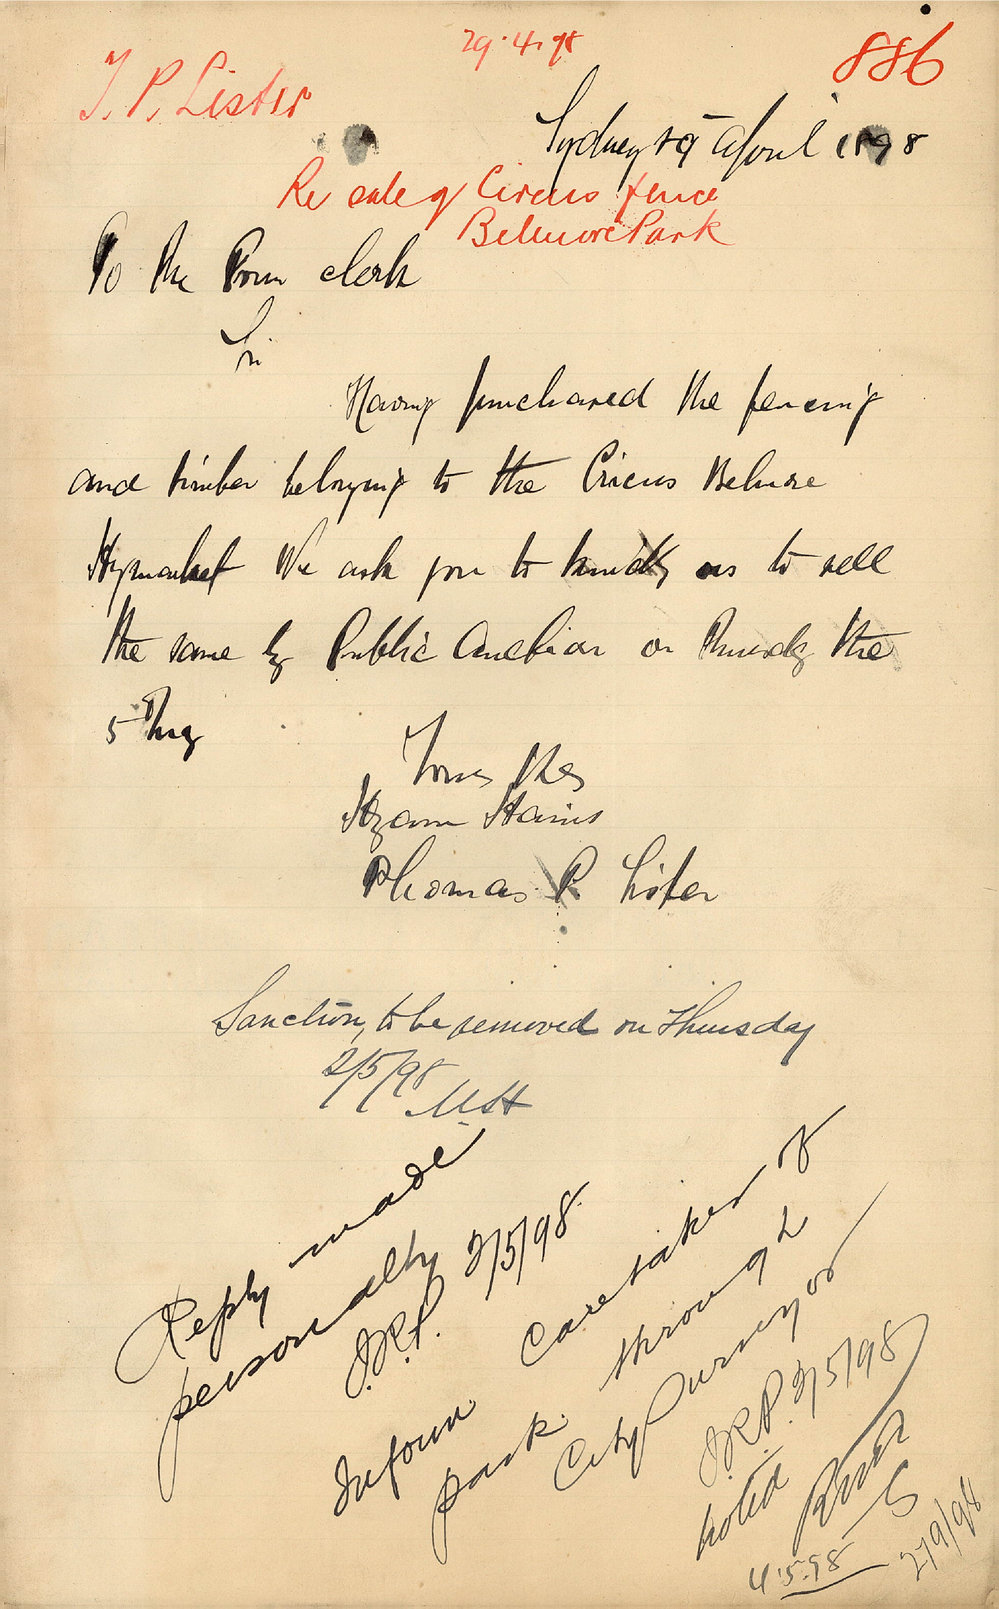 29.4.98
886
T. P. Lister
Sydney 29 April 1898
Re sale of Circus fence
Belmore Park
To the Town clerk
Sir
Having purchased the fencing
and timber belonging to the Circus Belmore
Haymarket We ask you to kindly us to sell
the same by Public Auction on Thursdy the
5th May
Yours
Harris
Thomas P Lister
Sanction, to be removed on Thursday
2/5/98
Reply made
personally
J.R.P. 2/5/98
Inform Caretaker of
park through
City Surveyor
J.R.P. 2/5/98
Noted
4.5.98
2/9/98